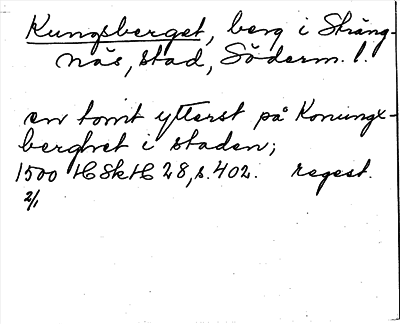 Kungsberget, berg i Sträng-
näs, stad, Söderm. l.
en tomt ytterst på Konungx-
berghet i staden;
1500 HSkH 28, s. 402. regest.
2/1